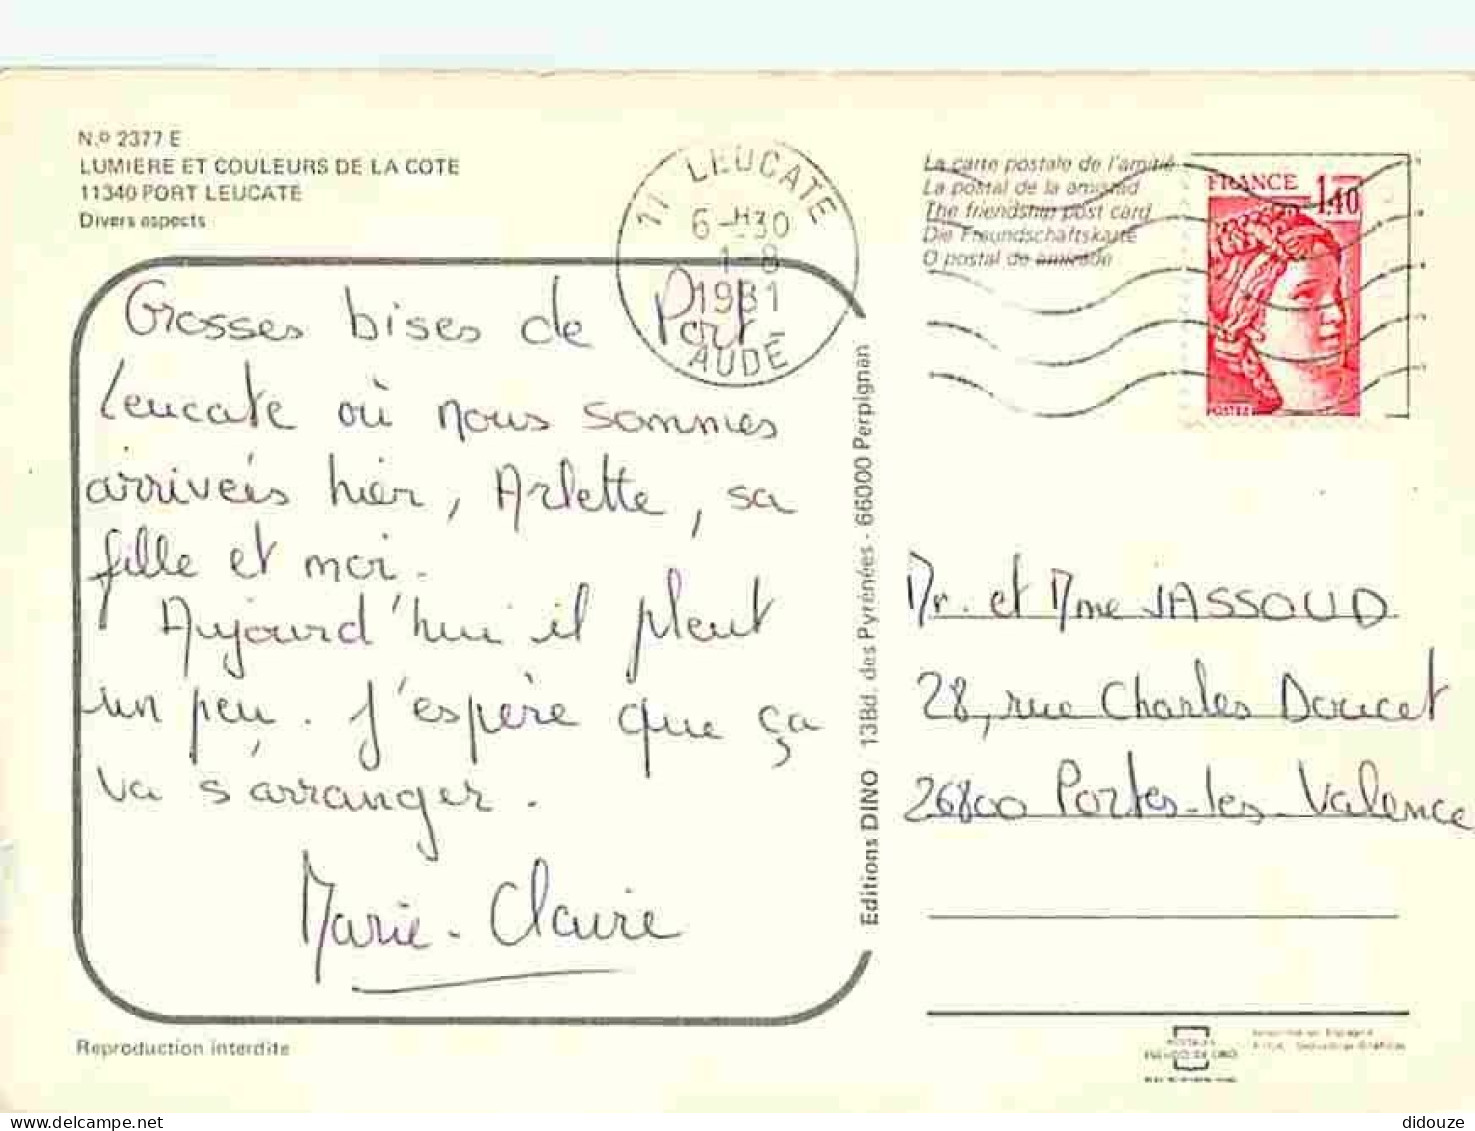 N.º 2377 E
LUMIERE ET COULEURS DE LA COTE
11340 PORT LEUCATE
Divers aspects
11 LEUCATE
6-H30
1-8
1981
AUDE
La carte postale de l'amitié
La postal de la amistad
The friendship post card
Die Freundschaftskarte
O postal de amizade
FRANCE 1,40
POSTES
Grosses bises de Port-
Leucate où nous sommes
arrivées hier, Arlette, sa
fille et moi.
Aujourd'hui il pleut
un peu. J'espère que ça
va s'arranger.
Marie-Claire
Editions DINO 13Bd. des Pyrénées - 66000 Perpignan
Mr. et Mme VASSOUD
28, rue Charles Doucet
26800 Portes-les-Valence
Reproduction interdite
didouze